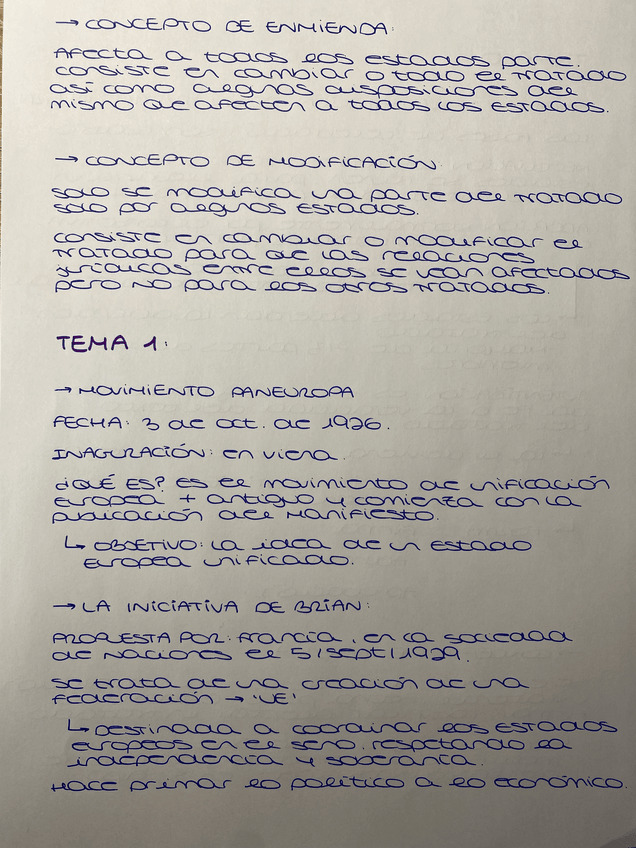 → CONCEPTO DE ENMIENDA:
Afecta a todos los estados parte.
Consiste en cambiar o todo el TRATADO
así como algunas disposiciones del
mismo que afecten a todos los ESTADOS.
→ CONCEPTO DE MODIFICACIÓN
Solo se modifica una parte del TRATADO
solo por algunos ESTADOS.
Consiste en cambiar o modificar el
TRATADO para que las relaciones
jurídicas entre ellos se vean afectados
pero NO para los otros TRATADOS.
TEMA 1:
→ MOVIMIENTO PANEUROPA
FECHA: 3 de oct. de 1926.
INAGURACIÓN: en viena.
¿QUÉ ES? ES el movimiento de unificación
europea + antiguo y comienza con la
publicación del Manifiesto.
↳ OBJETIVO: la idea de un estado
europea unificado.
→ LA INICIATIVA DE BRIAN:
PROPUESTA POR: Francia, en la sociedad
de Naciones el 5/sept/1929.
Se trata de una creación de una
federación → 'UE'
↳ DESTINADA a coordinar los ESTADOS
europeos en el seno. respetando la
independencia y soberanía.
Hace primar lo político a lo económico.